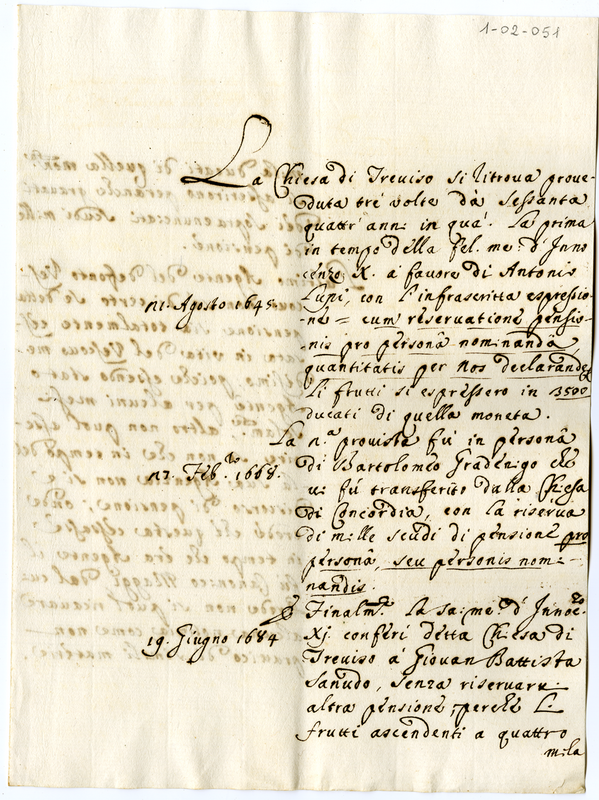 1-02-051
La Chiesa di Treviso si ritrova prove-
duta trè volte dà sessanta
quattr'anni in quà. La prima
in tempo della fel. me. d'Inno
cenzo X. a favore di Antonio
Lupi, con l'infrascritta espressio-
21. Agosto 1645.
ne = cum reservatione pensio-
nis pro personâ nominandâ,
quantitatis per Nos declarandę
li frutti si espressero in 3500
ducati di quella moneta.
La 2.ª provista fù in personâ
27. Feb.ro 1668.
di Bartolomeo Gradenigo che
vi fù transferito dalla Chiesa
di Concordia, con la riserva
di mille scudi di pensione pro
personâ, seu personis nomi-
nandis.
Finalm.te la sa: me: d'Innoc.zo
19 Giugno 1684
XJ. conferì detta Chiesa di
Treviso à Giovan Battista
Sanudo, senza riservarvi
altra pensione, perche li
frutti ascendenti a quattro
mila